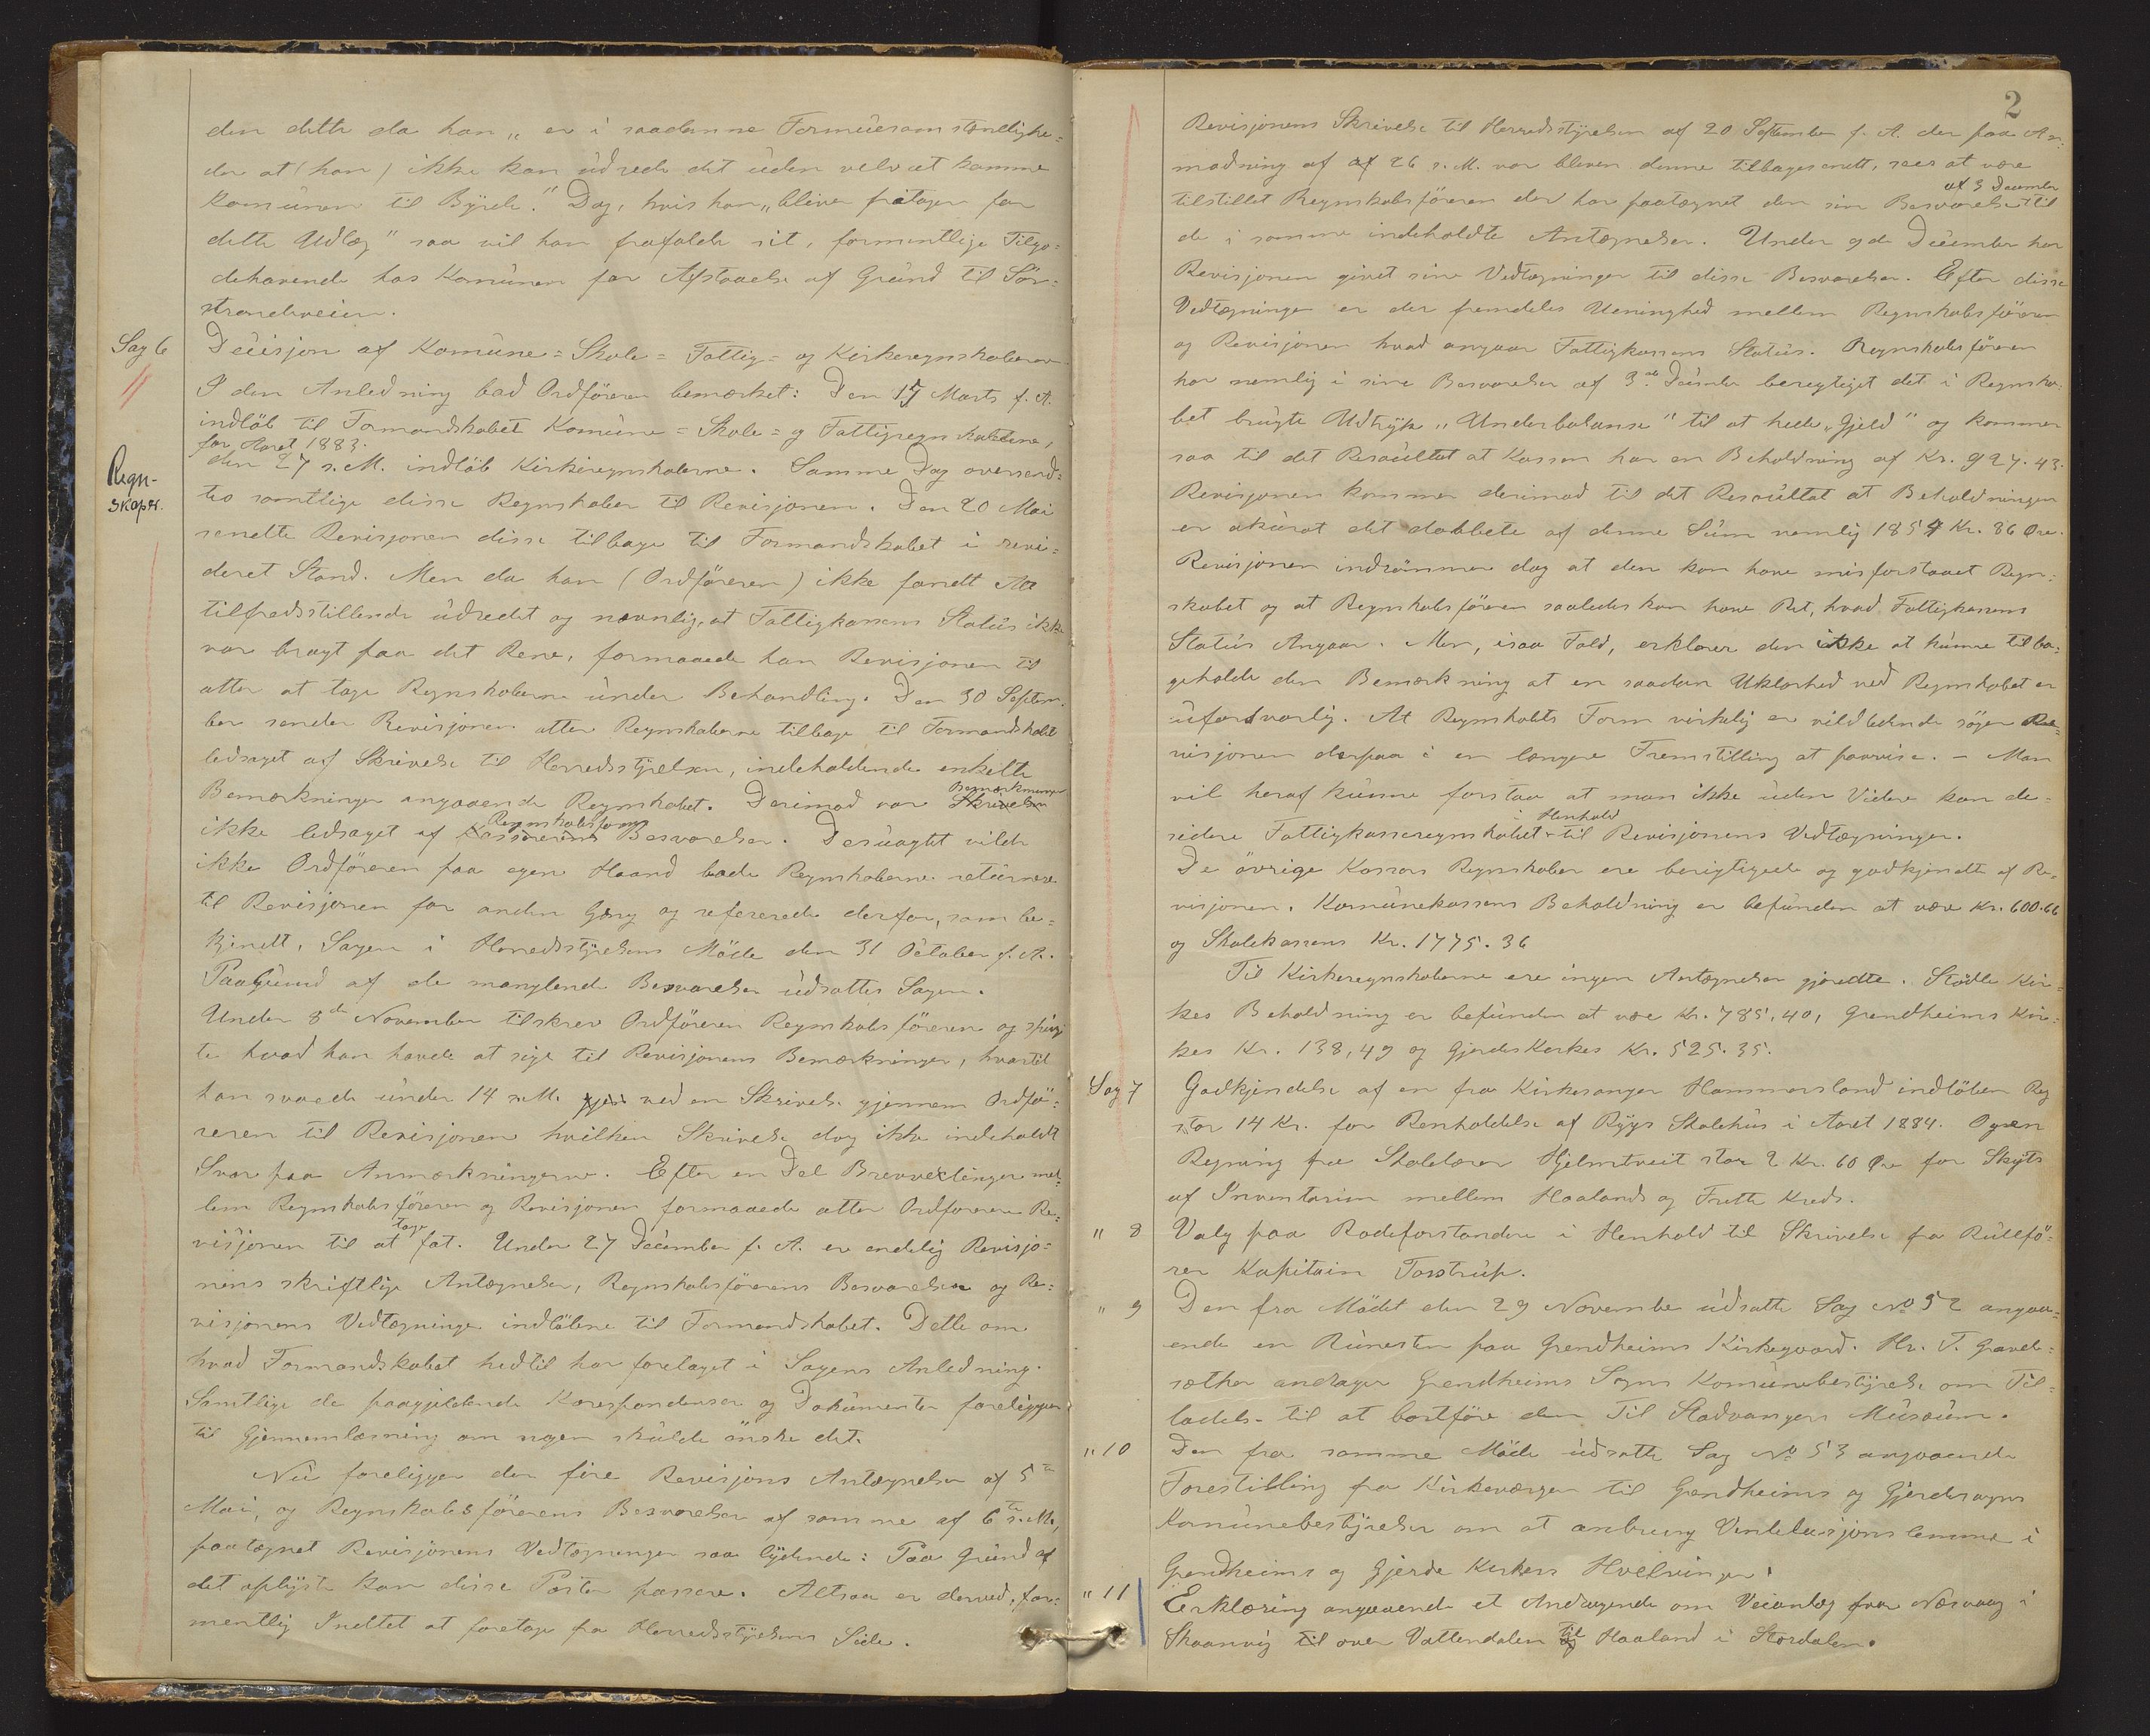 den dette da han „er i saadanne Formuesomstændighe=
der at (han) ikke kan udrede det uden velvet komme
Komunen til Byrde." Dog, hvis han „bliver fritagen for
dette Udlæg" saa vil han frafalde sit, formentlige Tilgo=
dehavende hos Komunen for Afstaaelse af Grund til Sör=
strandveien.
Sag 6
Decisjon af Komune= Skole= Fattig= og Kirkeregnskaberne
I den Anledning bad Ordföreren bemærket: Den 17 Marts f. A.
indlöb til Formandskabet Komune= Skole= og Fattigregnskaberne,
for Aaret 1883.
Regn-
skaper.
den 27 s. M. indlöb Kirkeregnskaberne. Samme Dag oversend=
tes samtlige disse Regnskaber til Revisjonen. Den 20 Mai
sendte Revisjonen disse tilbage til Formandskabet i revi=
deret Stand. Men da han (Ordföreren) ikke fandt Alt
tilfredsstillende udredet og navnlig, at Fattigkassens Status ikke
var bragt paa det Rene, formaaede han Revisjonen til
atter at tage Regnskaberne under Behandling. Den 30 Septem=
ber sender Revisjonen atter Regnskaberne tilbage til Formandskabet
ledsaget af Skrivelse til Herredsstyrelsen, indeholdende enkelte
Bemærkninger
Bemærkninger angaaende Regnskabet. Derimod var Skrivelsen
Regnskabsförer
ikke ledsaget af Kassererens Besvarelser. Desuagtet vilde
ikke Ordföreren paa egen Haand lade Regnskaberne returnere
til Revisjonen for anden Gang og refererede derfor, som be=
kjendt, Sagen i Herredsstyrelsens Möde den 31 October f. A.
Paa Grund af de manglende Besvarelser udsattes Sagen.
Under 8de November tilskrev Ordföreren Regnskabsföreren og spurg
te hvad han havde at sige til Revisjonens Bemærkninger, hvortil
han svarede under 14 s. M. ved en Skrivelse gjennem Ordfö=
reren til Revisjonen hvilken Skrivelse dog ikke indeholdt
Svar paa Anmærkningerne. Efter en Del Brevvexlinger mel=
lem Regnskabsföreren og Revisjonen formaaede atter Ordföreren Re=
tage
visjonen til at fat. Under 27 December f. A. er endelig Revisjo=
nens skriftlige Antegnelser, Regnskabsförerens Besvarelser og Re=
visjonens Vedtegninger indlöbne til Formandskabet. Dette om
hvad Formandskabet hidtil har foretaget i Sagens Anledning.
Samtlige de paagjeldende Korespondenser og Dokumenter foreligger
til Gjennemlæsning om nogen skulde önske det.
Nu foreligger der fire Revisjons Antegnelser af 5te
Mai, og Regnskabsförerens Besvarelser af samme af 6te s. M.,
paategnet Revisjonens Vedtegninger saa lydende: Paa Grund af
det oplyste kan disse Poster passere. Altsaa er derved, for=
mentlig Indtet at foretage fra Herredsstyrelsens Side.
2
Revisjonens Skrivelse til Herredsstyrelsen af 20 September f. A. der paa An=
modning af af 26 s. M. var bleven denne tilbagesendt, sees at være
af 3 December
tilstillet Regnskabsföreren der har paategnet den sine Besvarelser til
de i samme indeholdte Antegnelser. Under 9de December har
Revisjonen givet sine Vedtegninger til disse Besvarelser. Efter disse
Vedtegninger er der fremdeles Uenighed mellem Regnskabsföreren
og Revisjonen hvad angaar Fattigkassens Status. Regnskabsföreren
har nemlig i sine Besvarelser af 3de December berigtiget det i Regnska=
bet brugte Udtryk „Underbalanse" til at hede „Gjeld" og kommer
saa til det Resultat at Kassen har en Beholdning af Kr. 927.43.
Revisjonen kommer derimod til det Resultat at Beholdningen
er akurat det dobbelte af denne Sum nemlig 1854 Kr. 86 Öre.
Revisjonen indrömmer dog at den kan have misforstaaet Regn=
skabet og at Regnskabsföreren saaledes kan have Ret, hvad Fattigkassens
Status Angaar. Men, isaa Fald, erklærer den ikke at kunne tilba=
geholde den Bemærkning at en saadan Uklarhed ved Regnskabet er
uforsvarlig. At Regnskabets Form virkelig er vildledende söger Re=
visjonen derpaa i en længere Fremstilling at paavise. – Man
vil heraf kunne forstaa at man ikke uden Videre kan de=
i Henhold
sidere Fattigkasseregnskabet til Revisjonens Vedtegninger.
De övrige Kassers Regnskaber ere berigtigede og godkjendte af Re=
visjonen. Komunekassens Beholdning er befunden at være Kr. 600.66
og Skolekassens Kr. 1775.36
Til Kirkeregnskaberne ere ingen Antegnelser gjordte. Stödle Kir=
kes Beholdning er befunden at være Kr. 785,40, Grendheims Kir=
kes Kr. 138,49 og Gjerdes Kerkes Kr. 525.35.
Sag 7
Godkjendelse af en fra Kirkesanger Hammersland indlöben Reg
stor 14 Kr. for Renholdelse af Rygs Skolehus i Aaret 1884. Og en
Regning fra Skolelærer Hjelmtveit stor 2 Kr. 60 Öre for Skyts
af Inventarium mellem Haalands og Frette Kreds.
" 8
Valg paa Rodeforstandere i Henhold til Skrivelse fra Rullefö=
rer Kapitain Tostrup.
" 9
Den fra Mödet den 29 November udsatte Sag No 52 angaa=
ende en Runesten paa Grendheims Kirkegaard. Hr. T. Gravde=
sæther andrager Grendheims Sogns Komunebestyrelse om Til=
ladelse til at bortföre den Til Stadvangers Musæum.
" 10
Den fra samme Möde udsatte Sag No 53 angaaende
Forestilling fra Kirkeværgen til Grendheims og Gjerdesogns
Komunebestyrelser om at anbring Ventelasjonslemme i
Grendheims og Gjerde Kerkers Hvelvinger.
" 11
Erklæring angaaende et Andragende om Veianlæg fra Næsvaag i
Skaanvig til over Vattendalen til Haaland i Stordalen.